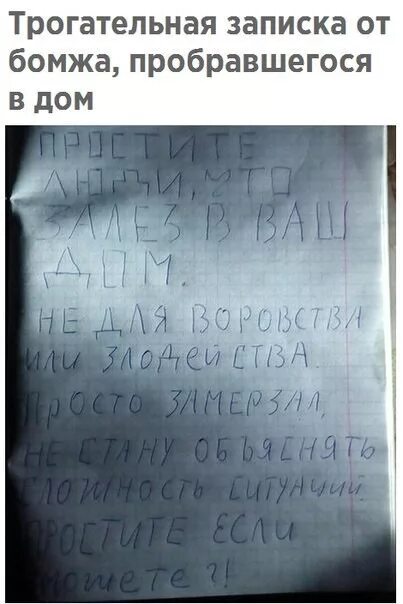 Трогательная записка от
бомжа, пробравшегося
в дом
ПРОСТИТЕ
ЛЮДИ, ЧТО
ЗАЛЕЗ В ВАШ
ДОМ.
НЕ ДЛЯ ВОРОВСТВА
ИЛИ ЗЛОДЕЙСТВА
ПРОСТО ЗАМЕРЗАЛ,
НЕ СТАНУ ОБЪЯСНЯТЬ
СЛОЖНОСТЬ СИТУАЦИИ
ПРОСТИТЕ ЕСЛИ
можете ?!